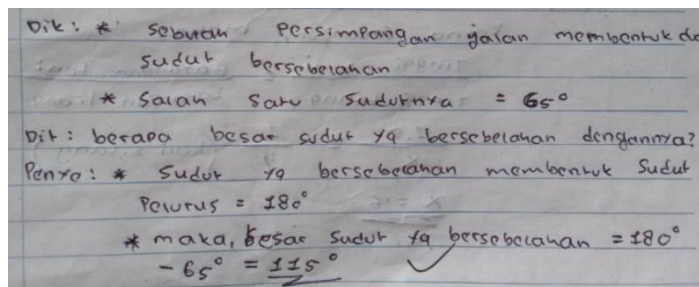 Dik: * sebutan persimpangan jalan membentuk du
sudut bersebelahan
* Salah satu sudutnya = 65°
Dit: berapa besar sudut yg bersebelahan dengannya?
Penye: * Sudut yg bersebelahan membentuk sudut
Pelurus = 180°
* maka, besar sudut yg bersebelahan = 180°
- 65° = 115°